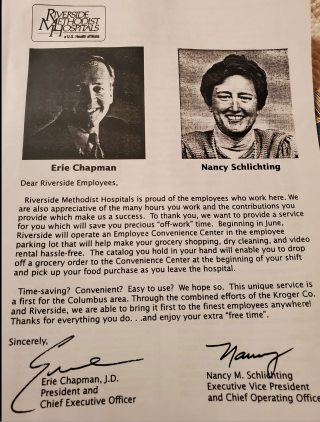 RIVERSIDE
METHODIST
HOSPITALS
A U.S. Health affiliate
Erie Chapman
Nancy Schlichting
Dear Riverside Employees,
Riverside Methodist Hospitals is proud of the employees who work here. We
are also appreciative of the many hours you work and the contributions you
provide which make us a success. To thank you, we want to provide a service
for you which will save you precious "off-work" time. Beginning in June,
Riverside will operate an Employee Convenience Center in the employee
parking lot that will help make your grocery shopping, dry cleaning, and video
rental hassle-free. The catalog you hold in your hand will enable you to drop
off a grocery order to the Convenience Center at the beginning of your shift
and pick up your food purchase as you leave the hospital.
Time-saving? Convenient? Easy to use? We hope so. This unique service is
a first for the Columbus area. Through the combined efforts of the Kroger Co.
and Riverside, we are able to bring it first to the finest employees anywhere!
Thanks for everything you do. . .and enjoy your extra "free time".
Sincerely,
Erie
Nancy
Erie Chapman, J.D.
President and
Chief Executive Officer
Nancy M. Schlichting
Executive Vice President
and Chief Operating Office